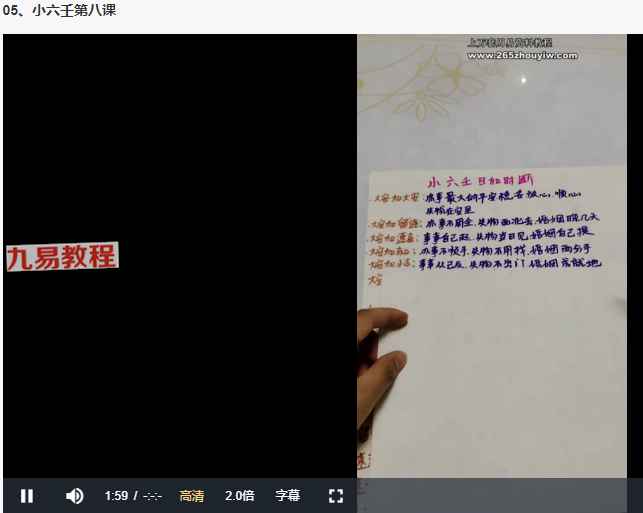 05、小六壬第八课
上万套周易资料教程
www.265zhouyiw.com
小六壬日加时断
大安加大安:办事最大的平安稳名极心顺心
失物在家里
大安加留连:办事不周全.失物西北去.婚姻晚几天
大安加速喜:事事自己起.失物当日见.婚姻自己提
大安加赤口:办事不顺手.失物不用找.婚姻两分手
大安加小吉:事事从己及.失物不出门.婚姻
大安
九易教程
1:59 / -:-:-
高清
2.0倍
字幕